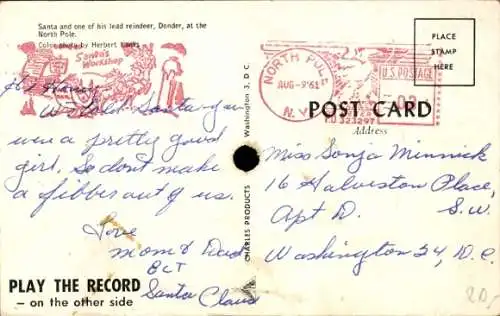 Santa and one of his lead reindeer, Donder, at the
North Pole.
Color photo by Herbert Lanks
Santa's
Workshop
Hi Honey
We told Santa you
were a pretty good
girl. So don't make
a fibber out of us.
Love
Mom & Dad
&
Santa Claus
PLAY THE RECORD
– on the other side
CHARLES PRODUCTS
Washington 3, D C.
NORTH POLE
AUG-9'61
N.Y.
U.S. POSTAGE
PLACE
STAMP
HERE
POST CARD
Address
Miss Sonja Minnick
16 Halveston Place,
S.W.
Apt D.
Washington 24, D.C.